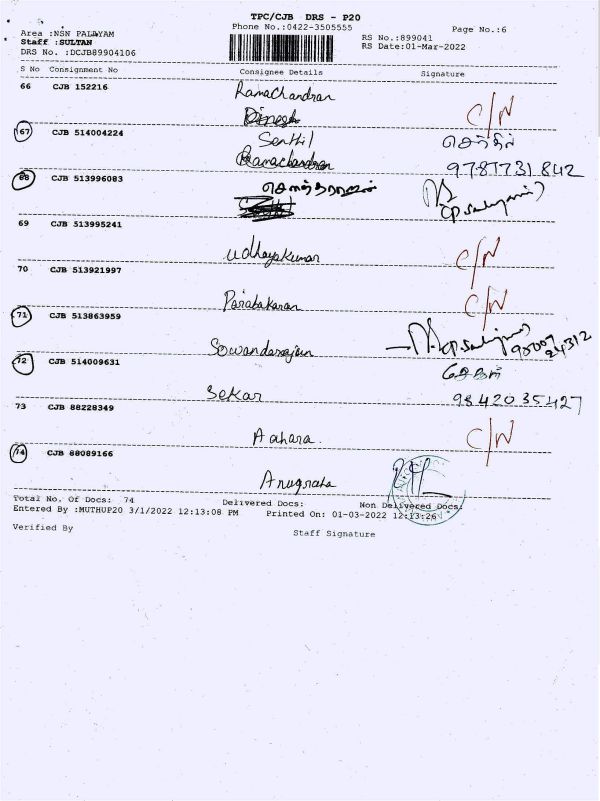 TPC/CJB DRS - P20
Phone No.:0422-3505555
Page No.:6
Area :NSN PALAYAM
RS No.:899041
Staff :SULTAN
RS Date:01-Mar-2022
DRS No. :DCJB89904106
S No Consignment No Consignee Details Signature
66 CJB 152216 Ramachandran
C/N
Dinesh
67 CJB 514004224 Senthil செந்தில்
Ramachandran 9787731842
68 CJB 513996083 சௌந்தரராஜன்
69 CJB 513995241
Udhayakumar C/N
70 CJB 513921997
Parabakaran C/N
71 CJB 513863959
Sowandarajan 98007 24312
72 CJB 514009631 சேகர்
Sekar 9842035427
73 CJB 88228349
Aahara C/N
74 CJB 88089166
Anugraha
Total No. Of Docs: 74 Delivered Docs: Non Delivered Docs:
Entered By :MUTHUP20 3/1/2022 12:13:08 PM Printed On: 01-03-2022 12:13:26
Verified By Staff Signature